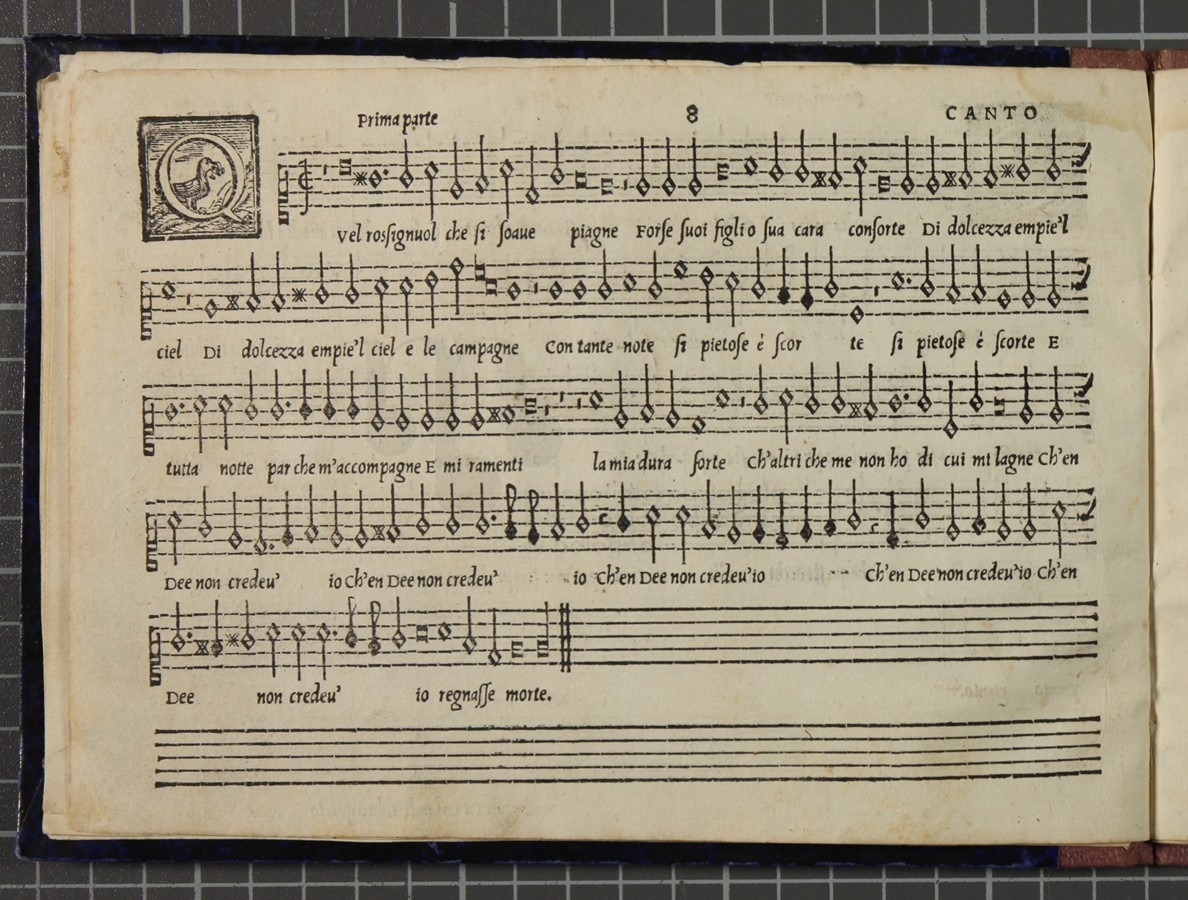 Prima parte 8 CANTO
Q
Vel rossignuol che si soaue piagne Forse suoi figli o sua cara consorte Di dolcezza empie'l
ciel Di dolcezza empie'l ciel e le campagne Con tante note si pietose é scor te si pietose é scorte E
tutta notte par che m'accompagne E mi ramenti la mia dura sorte Ch'altri che me non ho di cui mi lagne Ch'en
Dee non credeu' io Ch'en Dee non credeu' io Ch'en Dee non credeu'io Ch'en Dee non credeu'io Ch'en
Dee non credeu' io regnasse morte.